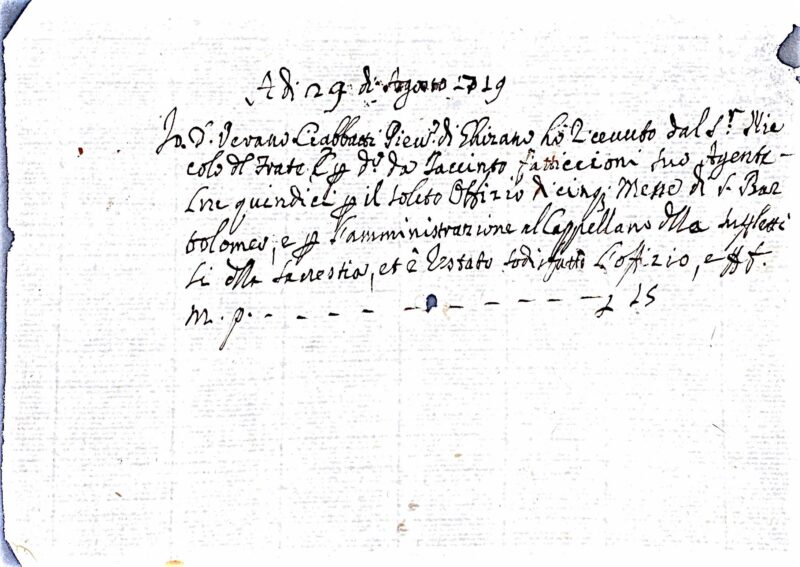 A di 29 di Agosto 1719
Io P. Verano Ciabatti Piev.o di Ghizano hò Receuuto dal S.r Nic
colo del Frate e p d.o da Iaccinto Fatticcioni suo Agente -
Lire quindici p il solito Offizio di cinq. Messe di S. Bar
tolomeo, e p l'amministrazione al Cappellano della
si della sacrestia, et è restato sodisfatto l'offizio, e
m. p. - - - - - - - - - - - £ 15